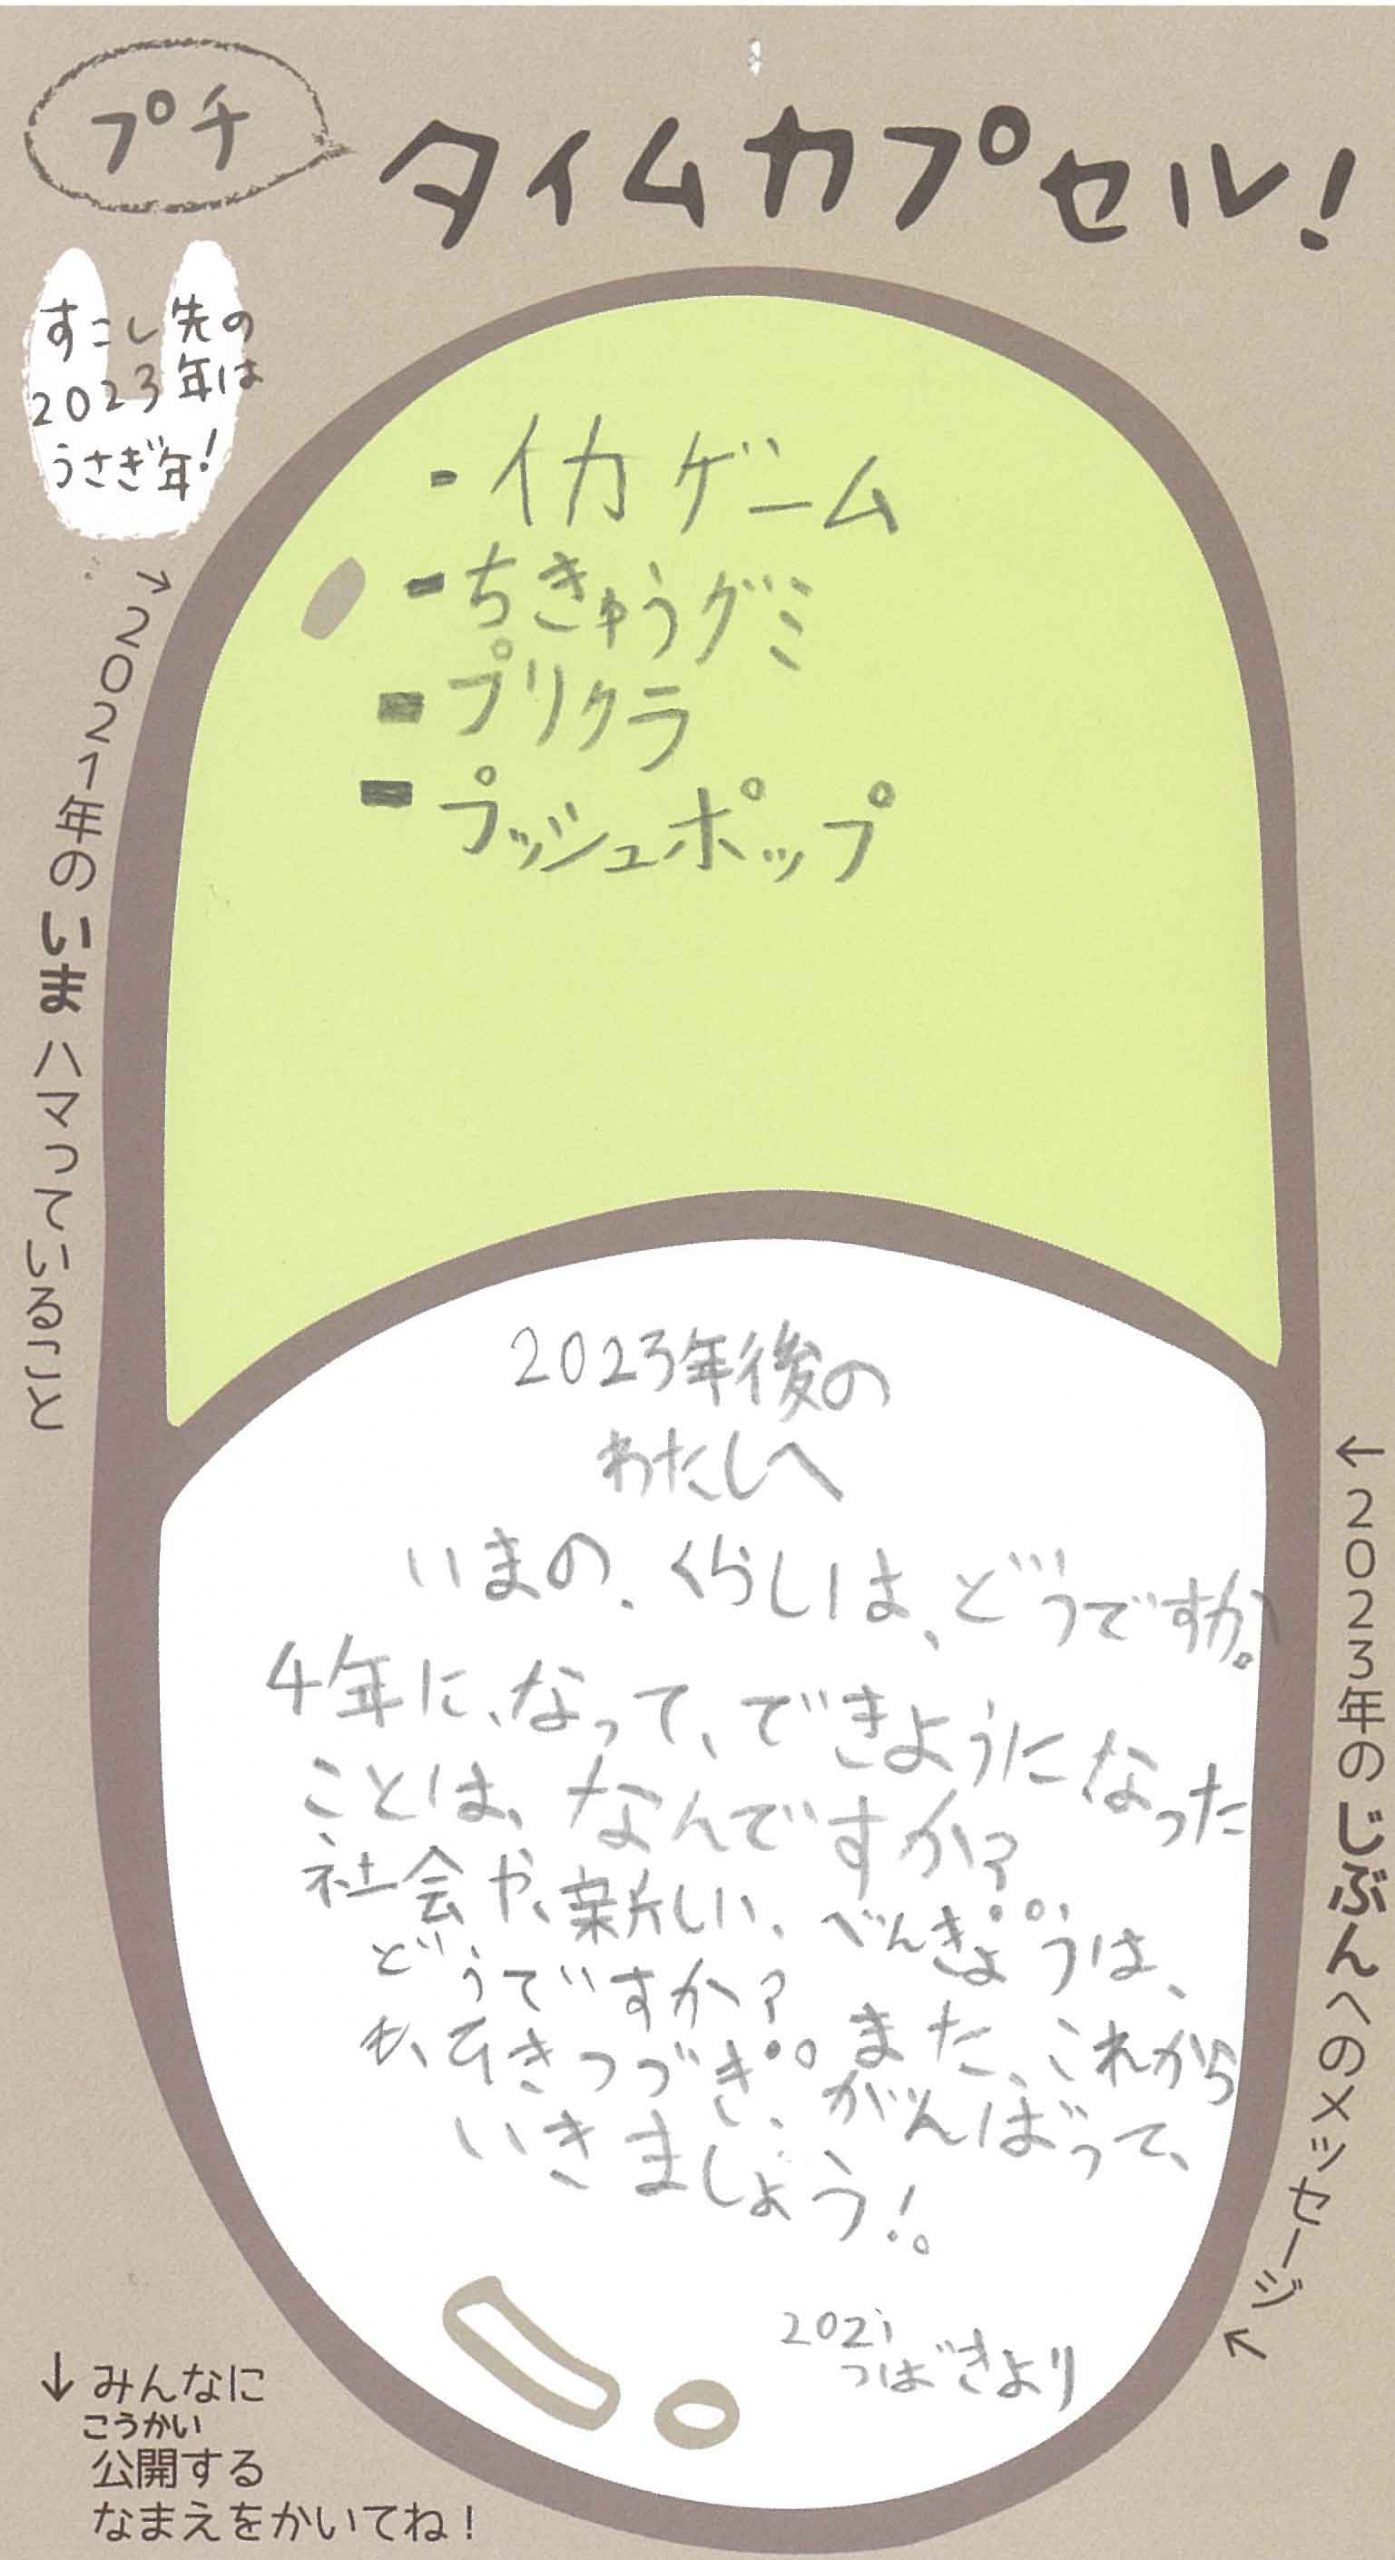 プチ
タイムカプセル!
すこし先の
2023年は
うさぎ年!
→2021年のいまハマっていること
・イカゲーム
・ちきゅうグミ
・プリクラ
・プッシュポップ
2023年後の
わたしへ
いまの、くらしは、どうですか。
4年に、なって、できようになった
ことは、なんですか?
社会や、新しい、べんきょうは、
どうですか?
また、これから
も、ひきつづき、がんばって、
いきましょう!。
2021
つばきより
←2023年のじぶんへのメッセージ
↓みんなに
こうかい
公開する
なまえをかいてね!